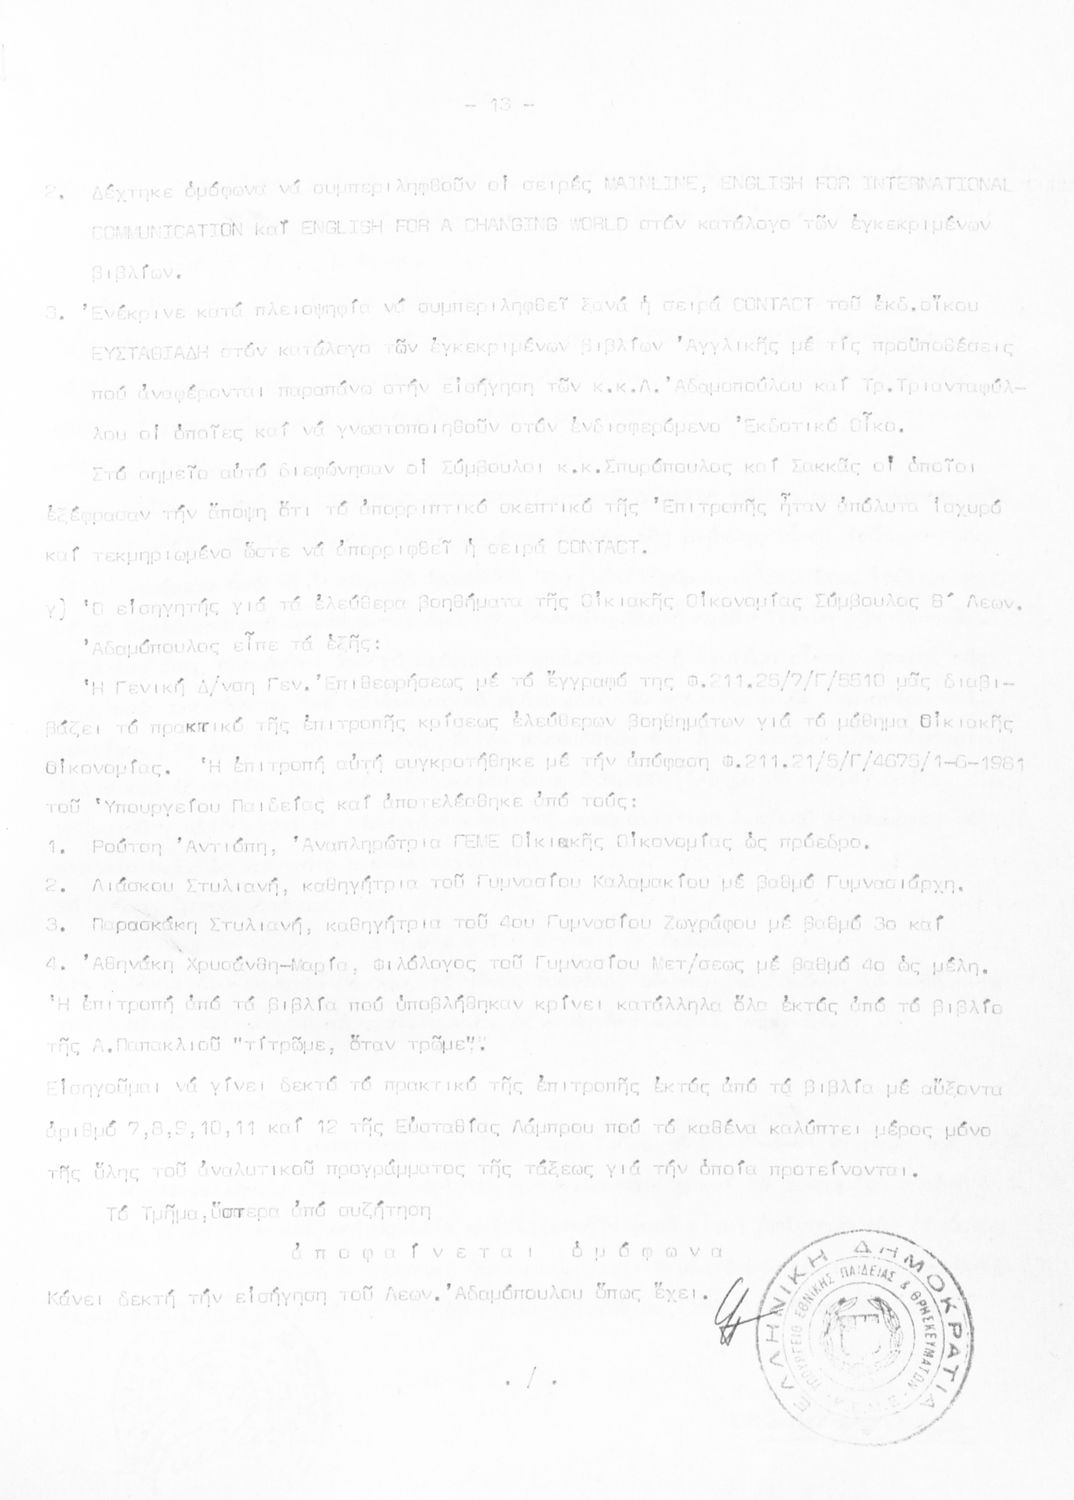 - 13 -
2. Δέχτηκε ὁμόφωνα νά συμπεριληφθοῦν οἱ σειρές MAINLINE, ENGLISH FOR INTERNATIONAL
COMMUNICATION καί ENGLISH FOR A CHANGING WORLD στόν κατάλογο τῶν ἐγκεκριμένων
βιβλίων.
3. Ἐνέκρινε κατά πλειοψηφία νά συμπεριληφθεῖ ξανά ἡ σειρά CONTACT τοῦ ἐκδ.οἴκου
ΕΥΣΤΑΘΙΑΔΗ στόν κατάλογο τῶν ἐγκεκριμένων βιβλίων Ἀγγλικῆς μέ τίς προϋποθέσεις
πού ἀναφέρονται παραπάνω στήν εἰσήγηση τῶν κ.κ.Λ. Ἀδαμοπούλου καί Τρ.Τριανταφύλ-
λου οἱ ὁποῖες καί νά γνωστοποιηθοῦν στόν ἐνδιαφερόμενο Ἐκδοτικό Οἶκο.
Στό σημεῖο αὐτό διεφώνησαν οἱ Σύμβουλοι κ.κ.Σπυρόπουλος καί Σακκᾶς οἱ ὁποῖοι
ἐξέφρασαν τήν ἄποψη ὅτι τό ἀπορριπτικό σκεπτικό τῆς Ἐπιτροπῆς ἦταν ἀπόλυτα ἰσχυρό
καί τεκμηριωμένο ὥστε νά ἀπορριφθεῖ ἡ σειρά CONTACT.
γ) Ὁ εἰσηγητής γιά τά ἐλεύθερα βοηθήματα τῆς Οἰκιακῆς Οἰκονομίας Σύμβουλος Β´ Λεων.
Ἀδαμόπουλος εἶπε τά ἑξῆς:
Ἡ Γενική Δ/νση Γεν. Ἐπιθεωρήσεως μέ τό ἔγγραφό της Φ.211.25/7/Γ/5510 μᾶς διαβι-
βάζει τό πρακτικό τῆς ἐπιτροπῆς κρίσεως ἐλεύθερων βοηθημάτων γιά τό μάθημα Οἰκιακῆς
Οἰκονομίας. Ἡ ἐπιτροπή αὐτή συγκροτήθηκε μέ τήν ἀπόφαση Φ.211.21/5/Γ/4675/1-6-1981
τοῦ Ὑπουργείου Παιδείας καί ἀποτελέσθηκε ἀπό τούς:
1. Ρούτση Ἀντιόπη, Ἀναπληρώτρια ΓΕΜΕ Οἰκιακῆς Οἰκονομίας ὡς πρόεδρο.
2. Λιάσκου Στυλιανή, καθηγήτρια τοῦ Γυμνασίου Καλαμακίου μέ βαθμό Γυμνασιάρχη.
3. Παρασκάκη Στυλιανή, καθηγήτρια τοῦ 4ου Γυμνασίου Ζωγράφου μέ βαθμό 3ο καί
4. Ἀθηνάκη Χρυσάνθη-Μαρία, φιλόλογος τοῦ Γυμνασίου Μετ/σεως μέ βαθμό 4ο ὡς μέλη.
Ἡ ἐπιτροπή ἀπό τά βιβλία πού ὑποβλήθηκαν κρίνει κατάλληλα ὅλα ἐκτός ἀπό τό βιβλίο
τῆς Α.Παπακλιοῦ "τίτρῶμε, ὅταν τρῶμε".
Εἰσηγοῦμαι νά γίνει δεκτό τό πρακτικό τῆς ἐπιτροπῆς ἐκτός ἀπό τά βιβλία μέ αὔξοντα
ἀριθμό 7,8,9,10,11 καί 12 τῆς Εὐσταθίας Λάμπρου πού τό καθένα καλύπτει μέρος μόνο
τῆς ὕλης τοῦ ἀναλυτικοῦ προγράμματος τῆς τάξεως γιά τήν ὁποία προτείνονται.
Τό Τμῆμα,ὕστερα ἀπό συζήτηση
ἀ π ο φ α ί ν ε τ α ι   ὁ μ ό φ ω ν α
Κάνει δεκτή τήν εἰσήγηση τοῦ Λεων. Ἀδαμόπουλου ὅπως ἔχει.
ΕΛΛΗΝΙΚΗ ΔΗΜΟΚΡΑΤΙΑ
ΥΠΟΥΡΓΕΙΟ ΕΘΝΙΚΗΣ ΠΑΙΔΕΙΑΣ & ΘΡΗΣΚΕΥΜΑΤΩΝ
. / .